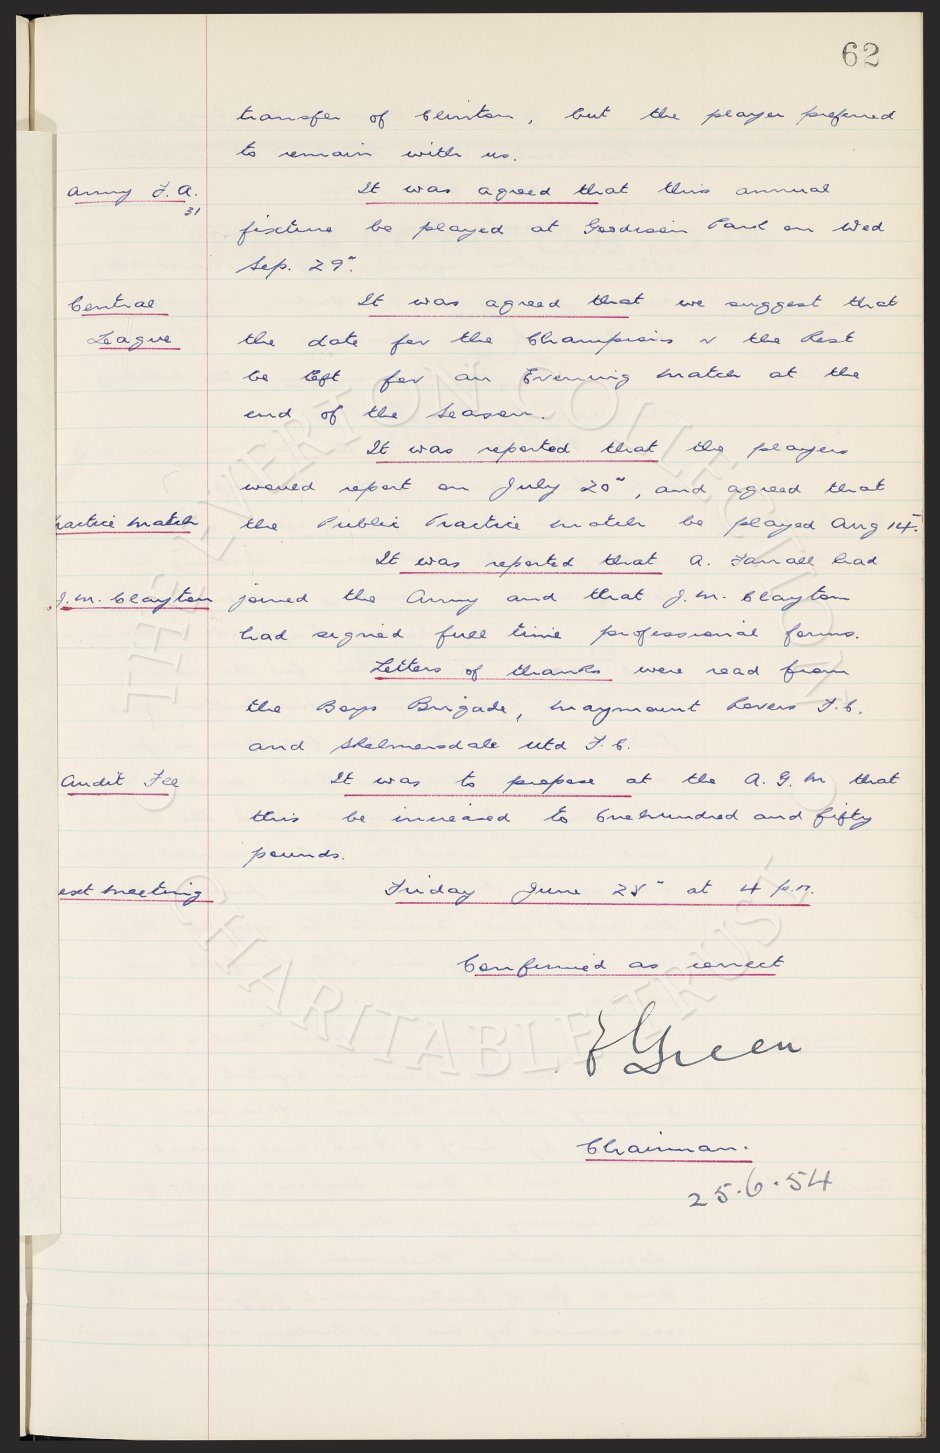 62
transfer of Clinton, but the player preferred
to remain with us.
Army F.A. It was agreed that this annual
31
fixture be played at Goodison Park on Wed
Sep. 29".
Central It was agreed that we suggest that
League the date for the Champions v the Rest
be left for an Evening match at the
end of the Season.
It was reported that the players
would report on July 20", and agreed that
ractice match the Public Practice match be played Aug 14".
It was reported that A. Farrall had
J.M. Clayton joined the Army and that J.M. Clayton
had signed full time professional forms.
Letters of thanks were read from
the Boys Brigade, Maymount Rovers F.C.
and Skelmersdale Utd F.C.
Audit Fee It was to propose at the A.G.M that
this be increased to One hundred and fifty
pounds.
ext Meeting Friday June 25" at 4 p.m.
Confirmed as correct
Green
Chairman.
25.6.54
THE EVERTON COLLECTION
CHARITABLE TRUST